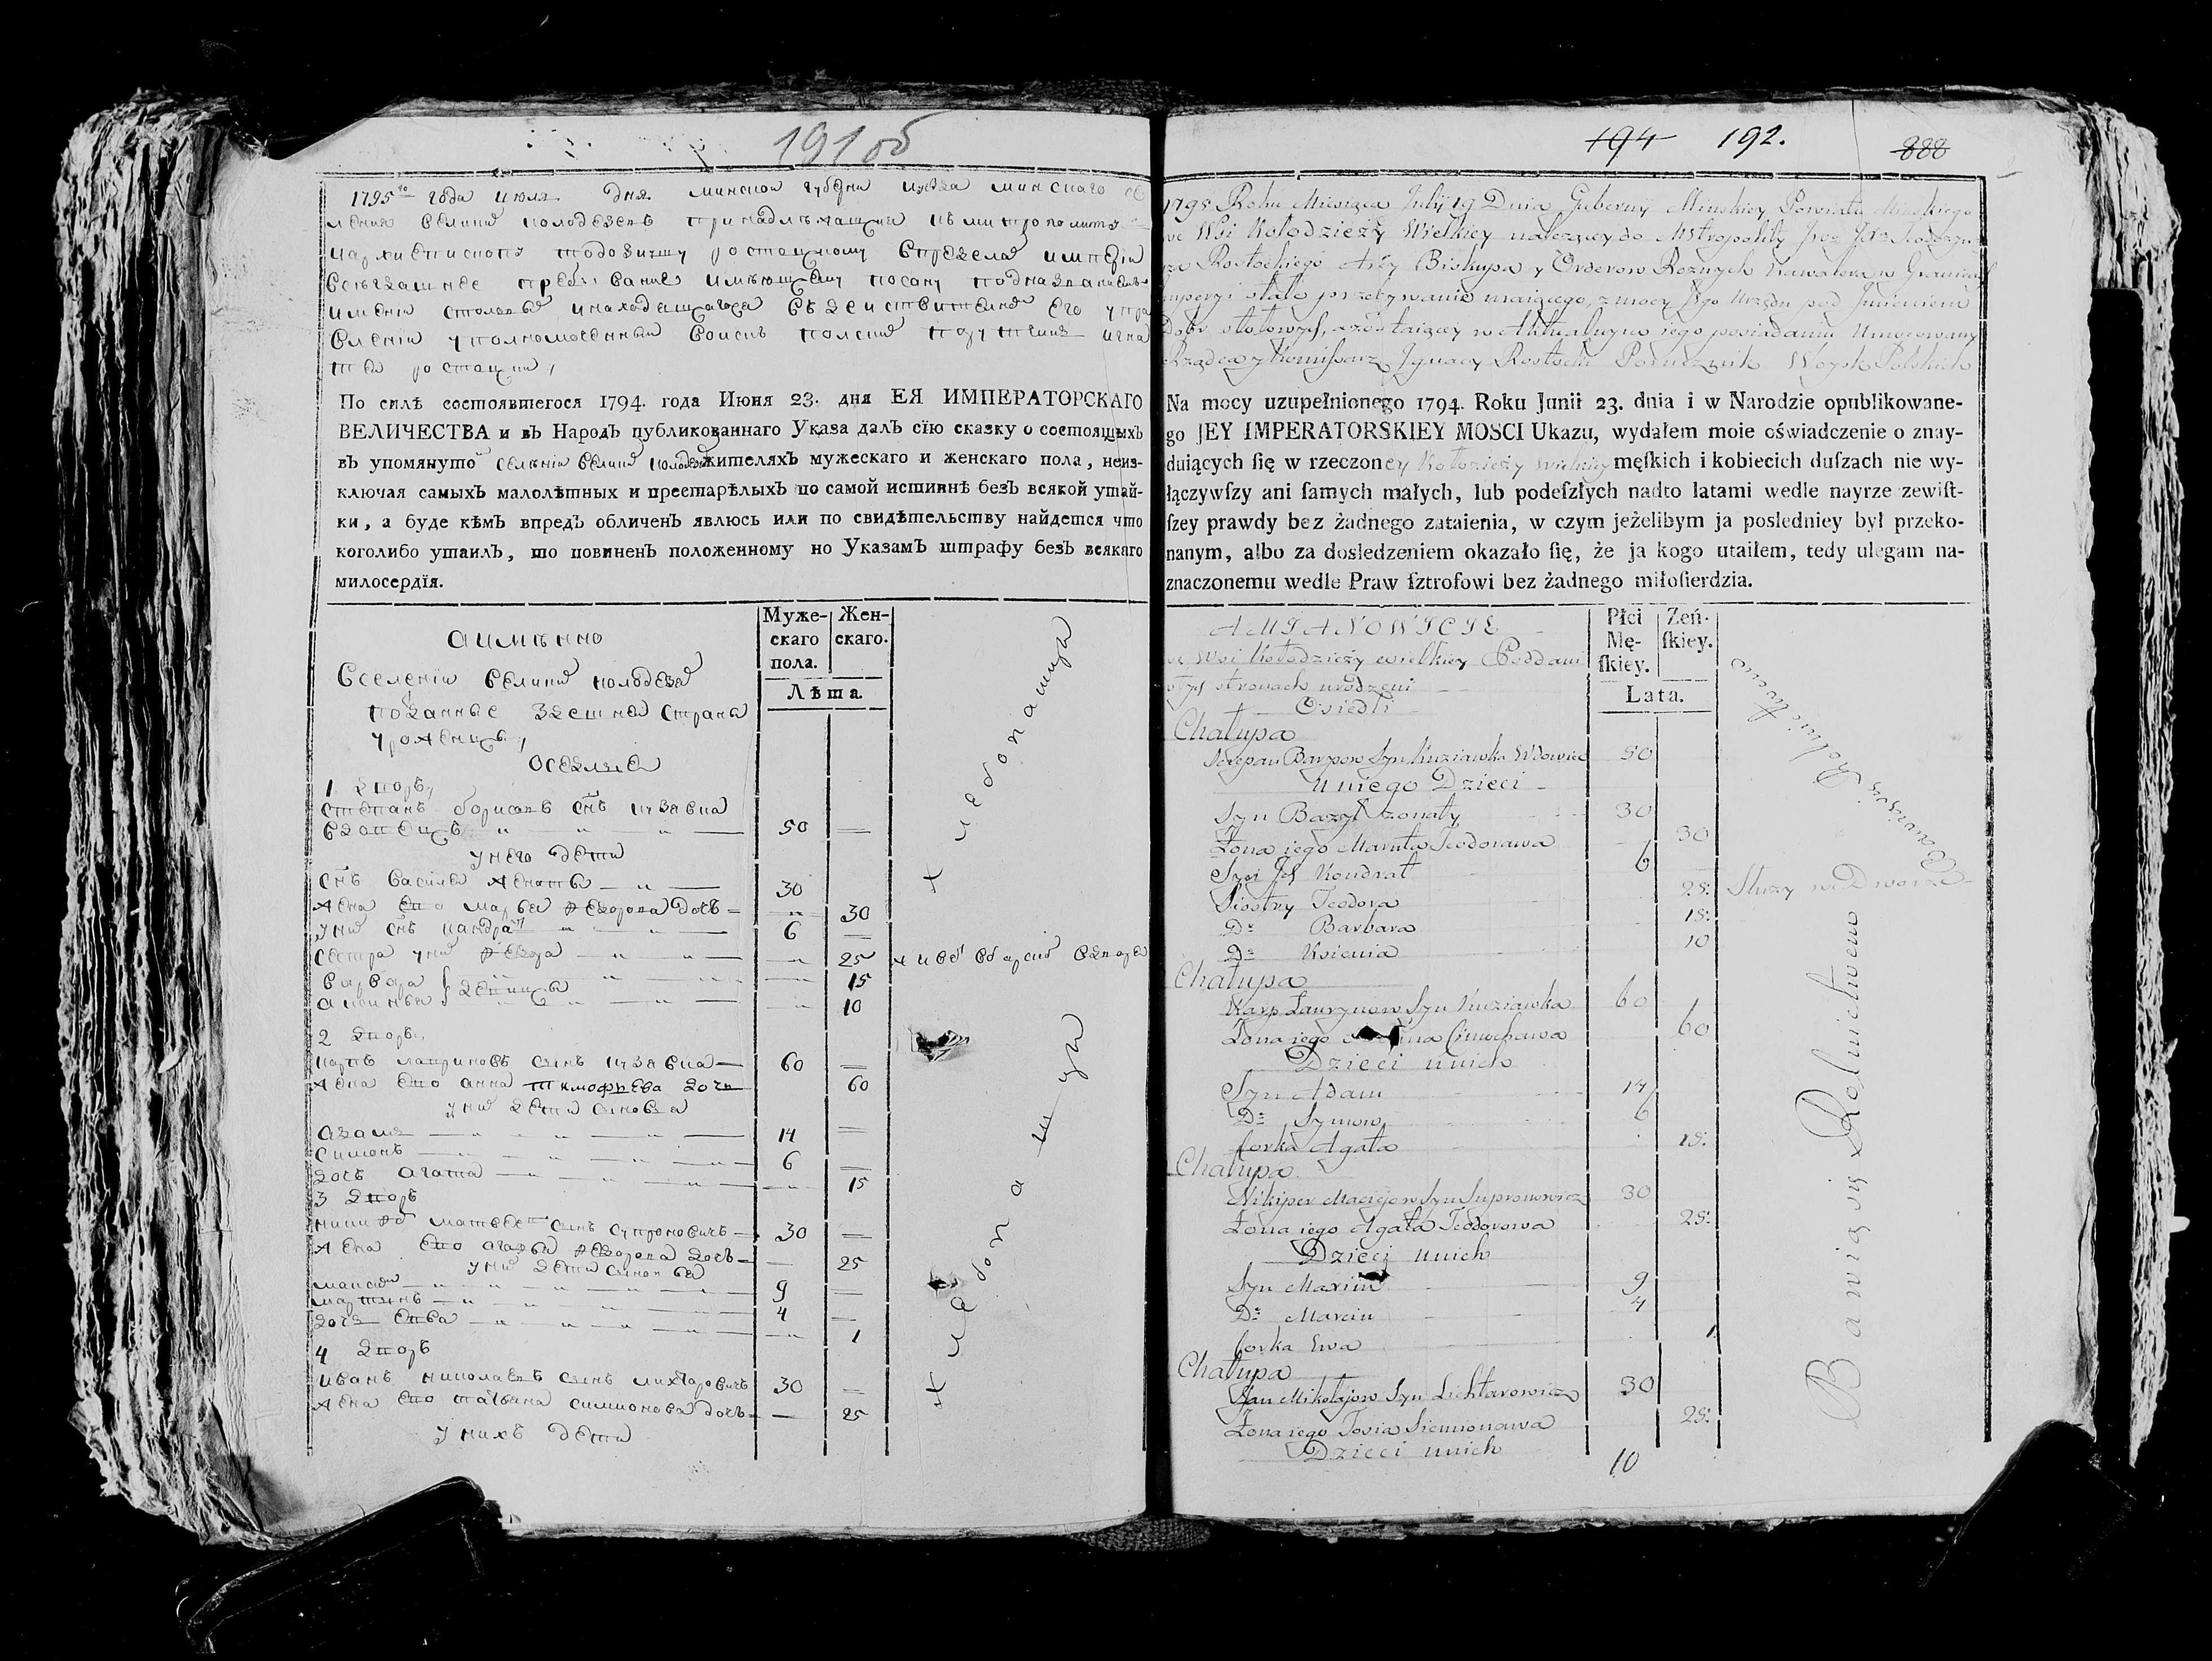 191об
1795го года июля дня минской губерни уезда минскаго се
ления великие колодезевъ принадлежащие къ митрополиту
ростоцкому впредела империи
всегдашнее пребывание имеющему
имении столовые
уполномоченный воискъ полские порутчикъ игна
ростоцки
По силѣ состоявшегося 1794. года Июня 23. дня ЕЯ ИМПЕРАТОРСКАГО
ВЕЛИЧЕСТВА и въ Народъ публикованнаго Указа далъ сїю сказку о состоящихъ
въ упомянуто селѣнiи велики колодези жителяхъ мужескаго и женскаго пола, неиз-
ключая самыхъ малолѣтных и престарѣлыхъ по самой истиннѣ безъ всякой утай-
ки, а буде кѣмъ впредъ обличенъ явлюсь или по свидѣтельству найдется что
коголибо утаилъ, то повиненъ положенному по Указамъ штрафу безъ всякаго
милосердїя.
Муже-
скаго
пола.
Жен-
скаго.
Лѣта.
аимѣнно
Вселенiи велики колодезе
поданные здешнеи страны
уроженцы
оседлые
1 дворъ
степанъ борисовъ снъ кузявка
вдовецъ 50
у него дети
снъ василеи женаты 30
жена ево марья федорова дочъ 30
у них снъ кандрат 6
сестра у них федора 25
варвара 15
девицы
аксинья 10
2 дворъ
карпъ лавриновъ сынъ кузявка 60
жена ево анна тимофѣева дочъ 60
у них дети сыновья
адамъ 14
симонъ 6
дочъ агата 15
3 дворъ
никифо матвеевъ сынъ супроновичъ 30
жена ево агафья федорова дочъ 25
у них дети сыновья
максим 9
мартинъ 4
дочъ ева 1
4 дворъ
иванъ николаевъ сынъ лихтаровичъ 30
жена ево татьяна симионова дочъ 25
у нихъ дети
194 192. 888
1795 Roku Miesiąca Julij 19 Dnia Gubernij Minskiey Powiatu Minskiego
we Wsi Kołodzieży Wielkiey należącey do Metropolity
Rostockiego Arcy Biskupa y Orderow Roznych Kawalera w Granicach
imperyi stałe przebywanie maiącego, z mocy Jego Urzędu pod Imieniem
Dobr stołowych, zostaiącey w Aktualnym iego posiadaniu Umocowany
Rządca y Komissarz Ignacy Rostocki Porucznik Woysk Polskich
Na mocy uzupełnionego 1794. Roku Junii 23. dnia i w Narodzie opublikowane-
go JEY IMPERATORSKIEY MOSCI Ukazu, wydałem moie oświadczenie o znay-
duiących ſię w rzeczoney Kołozieży wielkiey męſkich i kobiecich duſzach nie wy-
łączywſzy ani ſamych małych, lub podeſzłych nadto latami wedle nayrze zewiſt-
ſzey prawdy bez żadnego zataienia, w czym jeżelibym ja posledniey był przeko-
nanym, albo za dosledzeniem okazało ſię, że ja kogo utaiłem, tedy ulegam na-
znaczonemu wedle Praw ſztrofowi bez żadnego miłoſierdzia.
Płci
Mę-
ſkiey.
Zeń-
ſkiey.
Lata.
AMIANOWICIE
we Wsi Kołodzieży wielkiey Poddani
w tych stronach urodzeni
Osiedli
Chałupa
Stepan Barysow Syn Kuziawka Wdowiec 50
U niego Dzieci
Syn Bazyl żonaty 30
Żona iego Maruta Teodorawa 30
Syn Ich Kondrat 6
Siostry Teodora 25. Służy we Dworze
Da Barbara 15.
Da Ksienia 10
Chałupa
Karp Ławrynow Syn Kuziawka 60
Żona iego Cimochowa 60
Dzieci u nich
Syn Adam 14
Do Szymon 6
Corka Agata 15.
Chałupa
Nikiper Maciejow Syn Supronowicz 30
Żona iego Agata Teodorowa 25.
Dzieci u nich
Syn Maxim 9
Do Marcin 4
Corka Ewa 1
Chałupa
Jan Mikołajow Syn Lichtarowicz 30
Żona iego Siemionawa 25.
Dzieci u nich
10
Bawią się Rolnictwem
Bawią się Rolnictwem